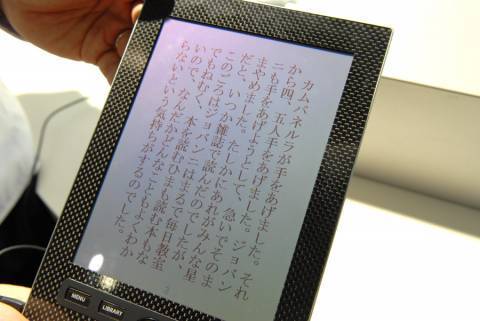 カムパネルラが手をあげました。それ
から四、五人手をあげました。ジョバン
ニも手をあげようとして、急いでそのま
まやめました。たしかにあれがみんな星
だと、いつか雑誌で読んだのでしたが、
このごろはジョバンニはまるで毎日教室
でもねむく、本を読むひまも読む本もな
いので、なんだかどんなこともよくわか
らないという気持ちがするのでした。
MENU
LIBRARY